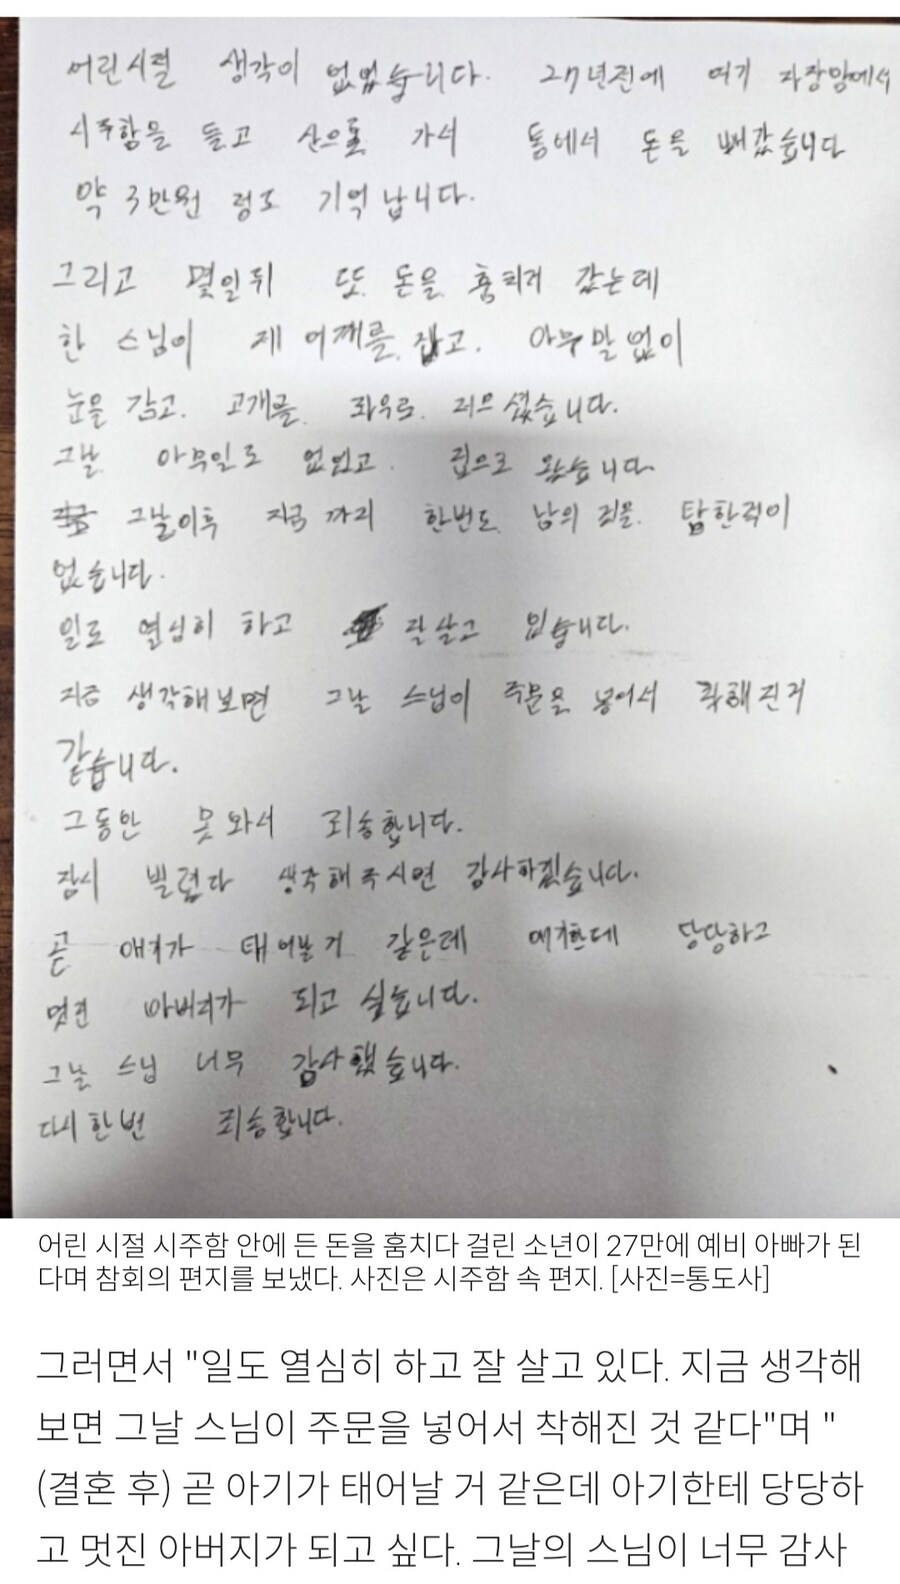 어린시절 생각이 없었습니다. 27년전에 여기 자장암에서
시주함을 들고 산으로 가서 통에서 돈을 빼갔습니다
약 3만원 정도 기억 납니다.
그리고 몇일뒤 또 돈을 훔치러 갔는데
한 스님이 제 어깨를 잡고. 아무말 없이
눈을 감고. 고개를 좌우로. 저으셨습니다.
그날 아무일도 없었고. 집으로 왔습니다
그날이후 지금 까지 한번도 남의 것을 탐한적이
없습니다.
일도 열심히 하고 잘살고 있습니다.
지금 생각해보면 그날 스님이 주문을 넣어서 착해진거
같습니다.
그동안 못와서 죄송합니다.
잠시 빌렸다 생각해주시면 감사하겠습니다.
곧 애기가 태어날거 같은데 애기한테 당당하고
멋진 아버지가 되고 싶습니다.
그날 스님 너무 감사했습니다.
다시한번 죄송합니다.
어린 시절 시주함 안에 든 돈을 훔치다 걸린 소년이 27만에 예비 아빠가 된
다며 참회의 편지를 보냈다. 사진은 시주함 속 편지. [사진=통도사]
그러면서 "일도 열심히 하고 잘 살고 있다. 지금 생각해
보면 그날 스님이 주문을 넣어서 착해진 것 같다"며 "
(결혼 후) 곧 아기가 태어날 거 같은데 아기한테 당당하
고 멋진 아버지가 되고 싶다. 그날의 스님이 너무 감사